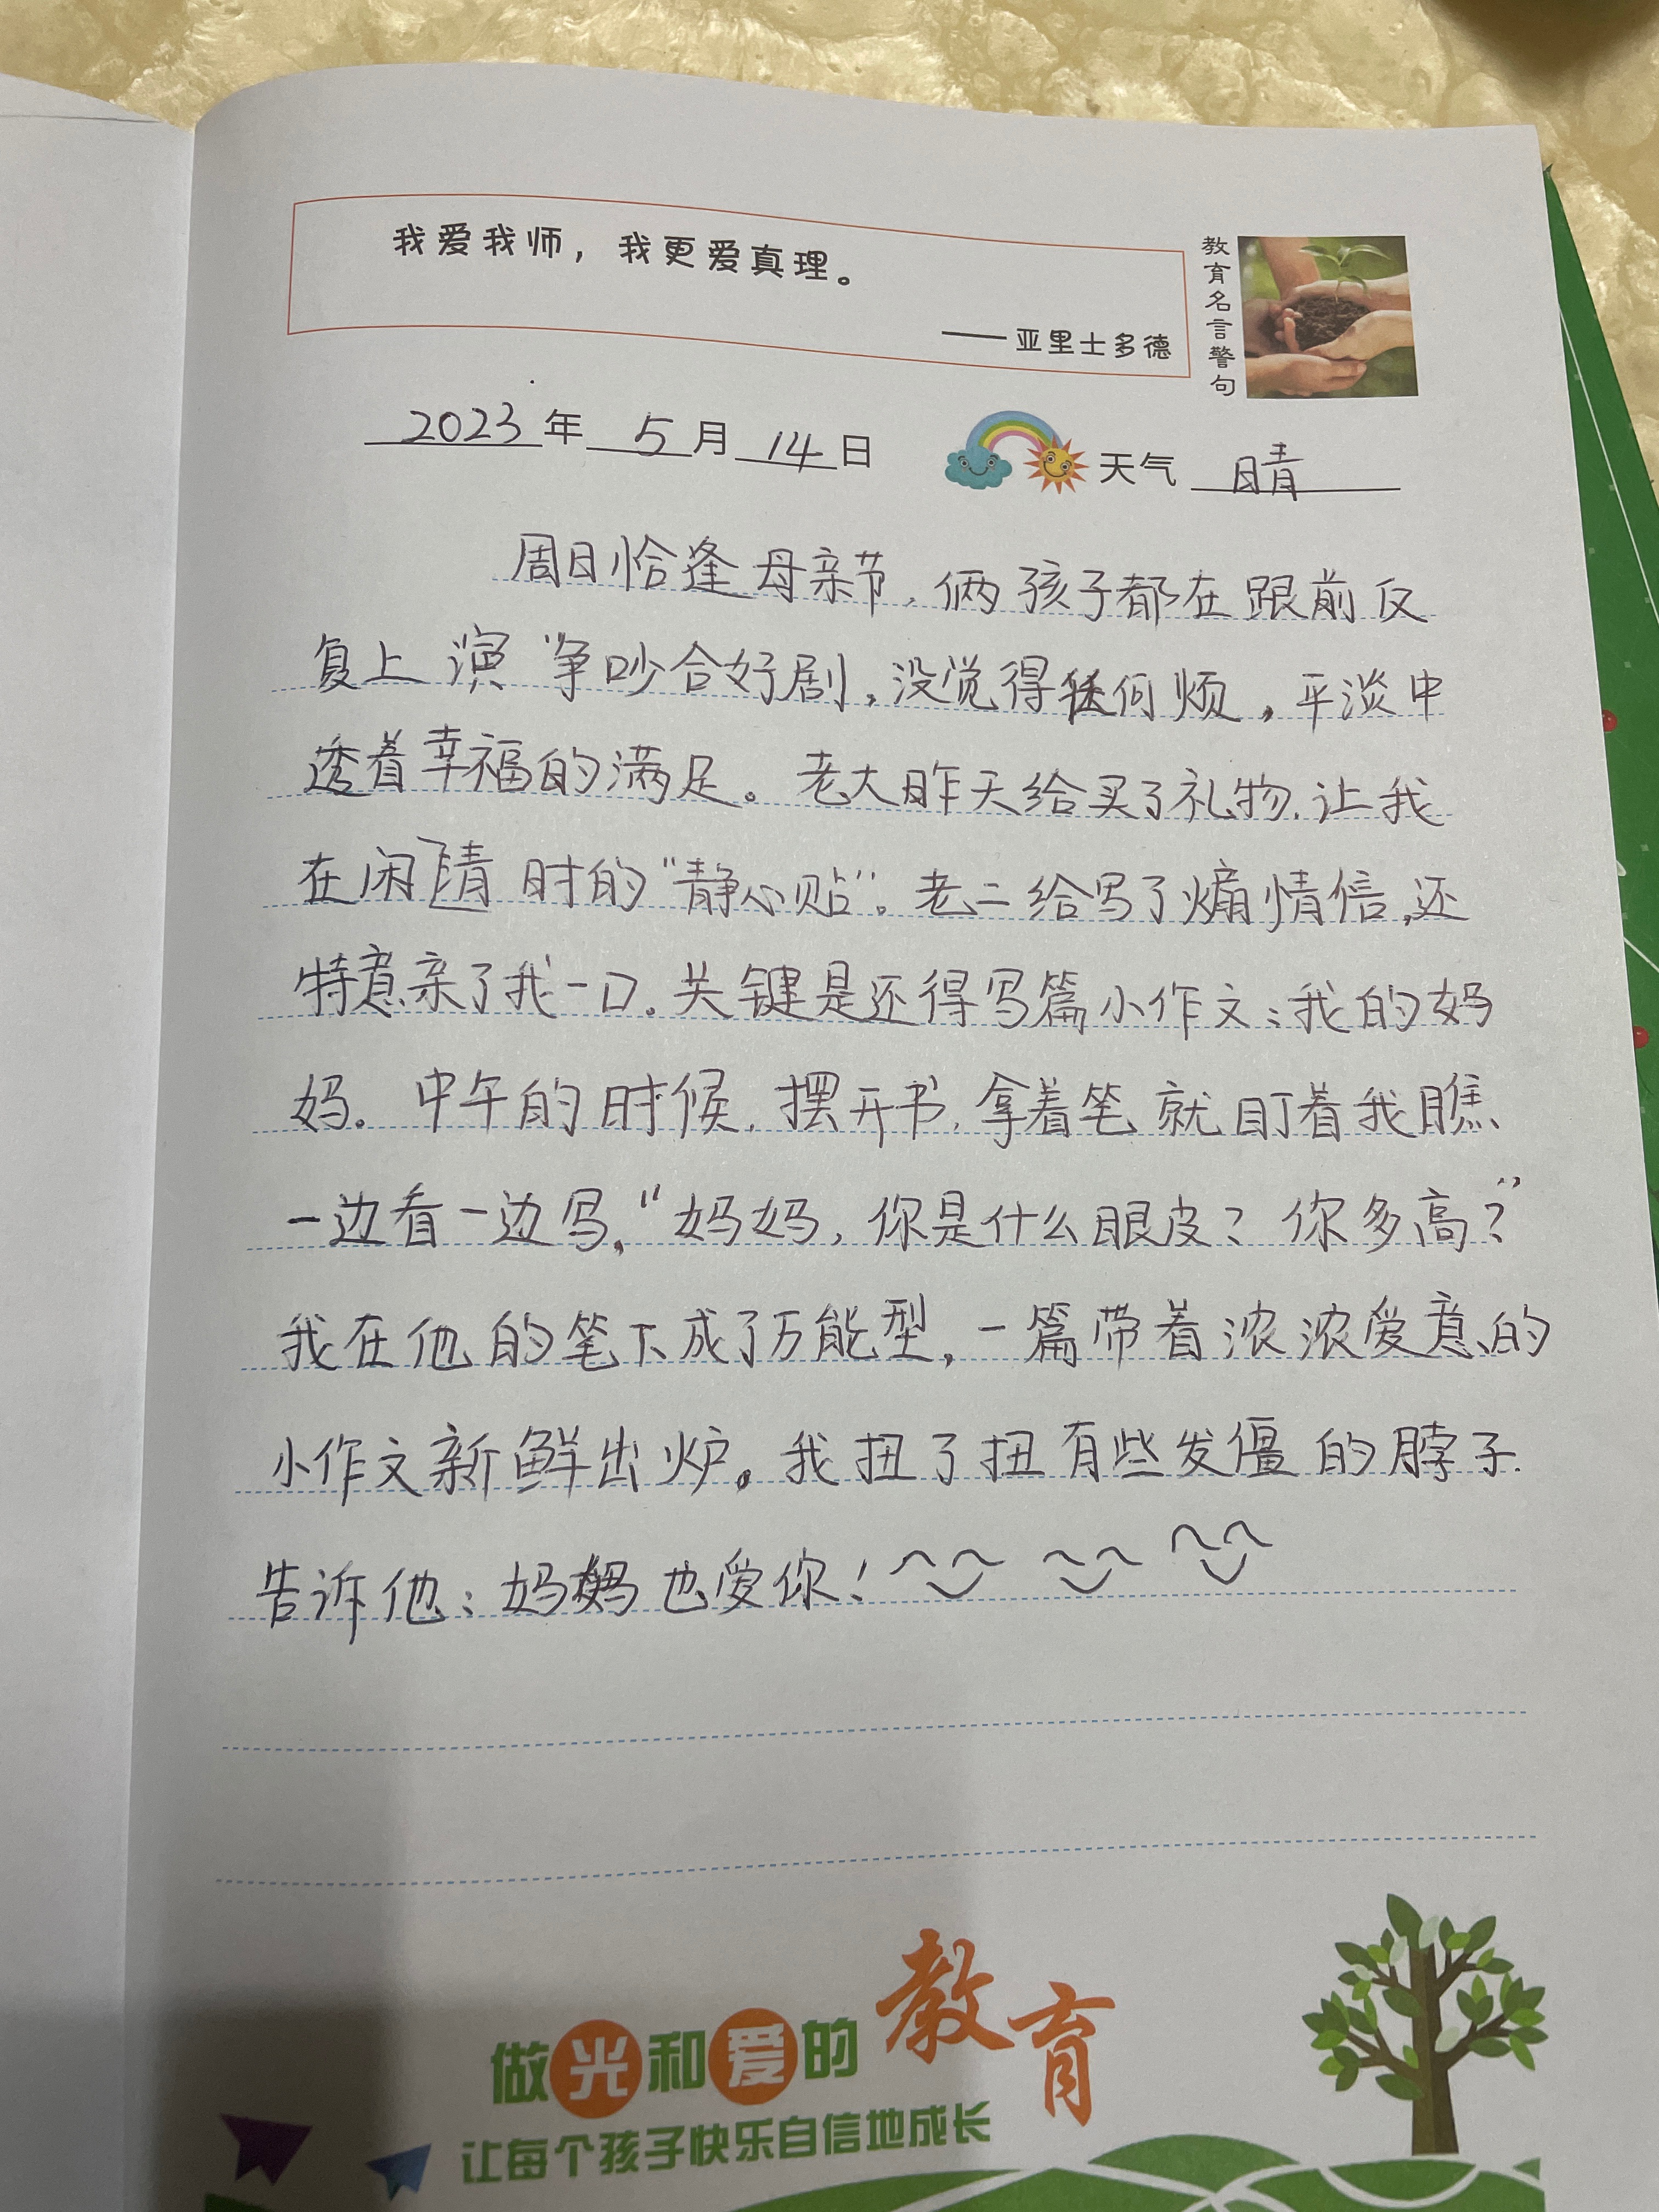 我爱我师，我更爱真理。
——亚里士多德
教育名言警句
2023年5月14日 天气 晴
周日恰逢母亲节，俩孩子都在跟前反
复上演"争吵合好剧，没觉得任何烦，平淡中
透着幸福的满足。老大昨天给买了礼物，让我
在闲暇时的"静心贴"。老二给写了煽情信，还
特意亲了我一口。关键是还得写篇小作文：我的妈
妈。中午的时候，摆开书，拿着笔就盯着我瞧、
一边看一边写，"妈妈，你是什么眼皮？你多高？"
我在他的笔下成了万能型，一篇带着浓浓爱意的
小作文新鲜出炉。我扭了扭有些发僵的脖子，
告诉他：妈妈也爱你！
做光和爱的教育
让每个孩子快乐自信地成长